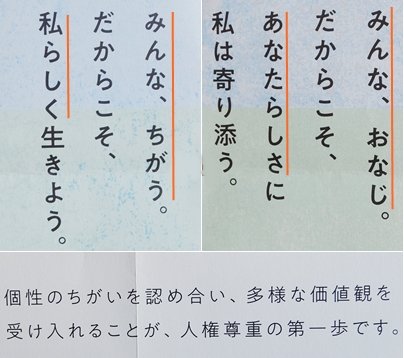 みんな、ちがう。
だからこそ、
私らしく生きよう。
みんな、おなじ。
だからこそ、
あなたらしさに
私は寄り添う。
個性のちがいを認め合い、多様な価値観を
受け入れることが、人権尊重の第一歩です。